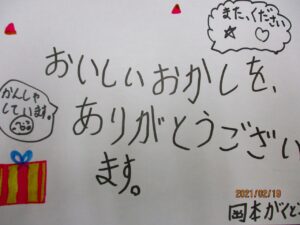 また、ください
おいしいおかしを、
ありがとうござい
ます。
かんしゃ
しています。
2021/02/19
岡本がくと